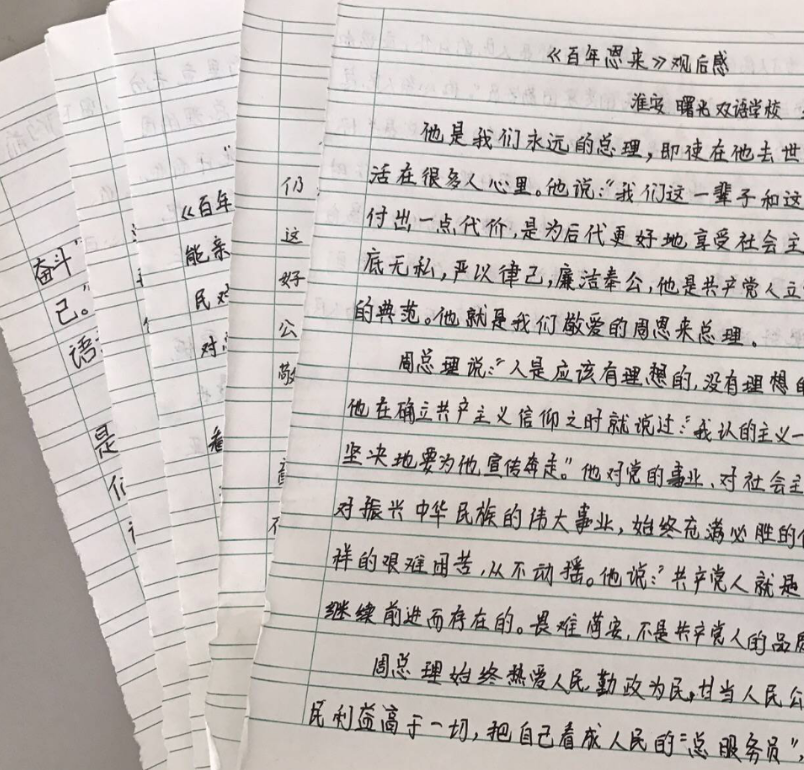 《百年恩来》观后感
淮安 曙光双语学校
他是我们永远的总理,即使在他去世
活在很多人心里。他说:“我们这一辈子和这
付出一点代价,是为后代更好地享受社会主
底无私,严以律己,廉洁奉公,他是共产党人立
的典范。他就是我们敬爱的周恩来总理。
周总理说:“人是应该有理想的,没有理想的
他在确立共产主义信仰之时就说过:“我认的主义一
坚决地要为他宣传奔走。”他对党的事业、对社会主
对振兴中华民族的伟大事业,始终充满必胜的
样的艰难困苦,从不动摇。他说:“共产党人就是
继续前进而存在的。畏难苟安,不是共产党人的品质
周总理始终热爱人民,勤政为民,甘当人民公
民利益高于一切,把自己看成人民的“总服务员”,
仍
这
好
公
敬
《百年
能亲
民对
对
看
奋斗”
己。”
语
是
们